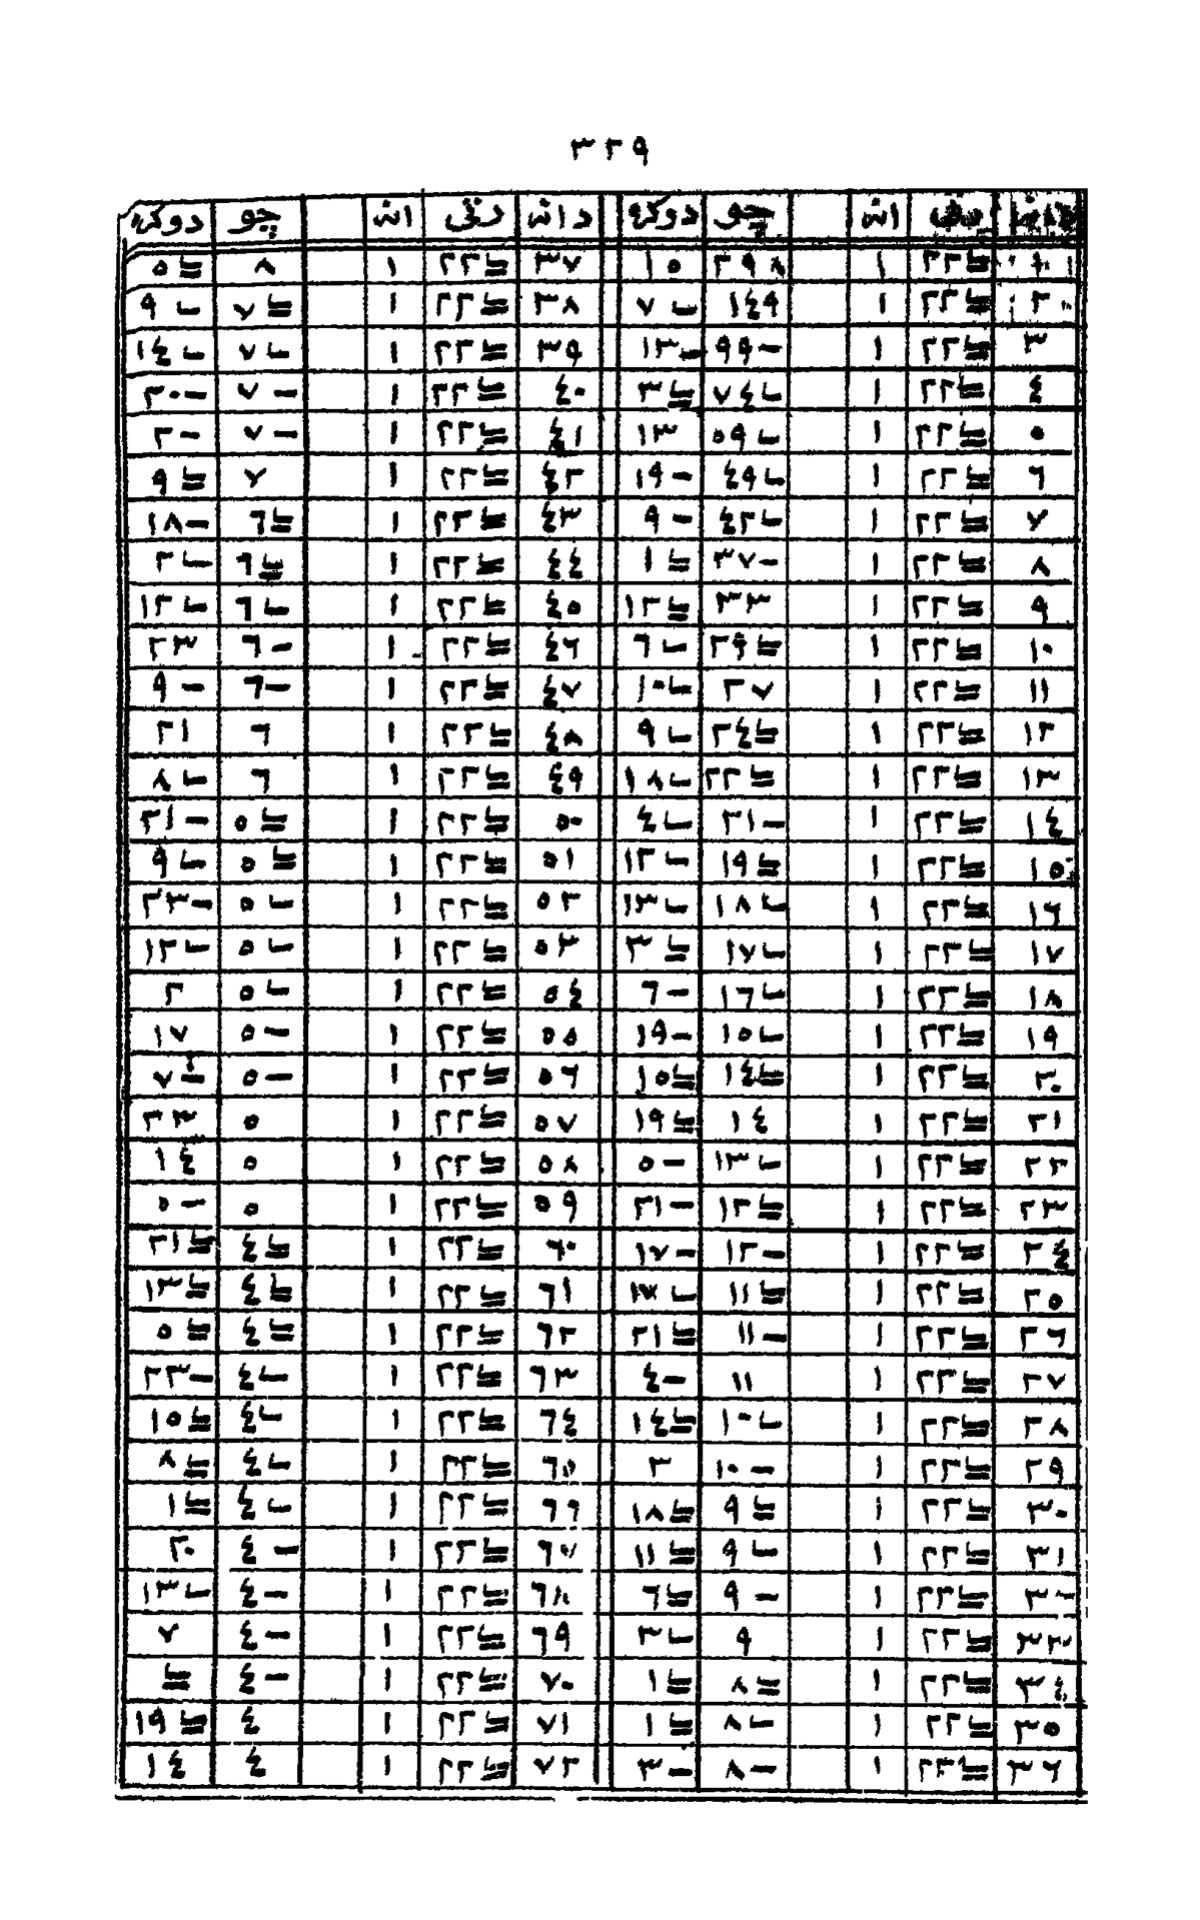 ٣٢٩
دانه رتي انه چو دوكره دانه رتي انه چو دوكره
١ ٢٢≡ ١ ٢٩٨ ١٥ ٣٧ ٢٢≡ ١ ٨ ٥≡
٢ ٢٢≡ ١ ١٤٩ ٧ٮـ ٣٨ ٢٢≡ ١ ٧≡ ٩ٮـ
٣ ٢٢≡ ١ ٩٩- ١٣ـ ٣٩ ٢٢≡ ١ ٧ٮـ ١٤ٮـ
٤ ٢٢≡ ١ ٧٤ٮـ ٣≡ ٤٠ ٢٢≡ ١ ٧- ٢٠-
٥ ٢٢≡ ١ ٥٩ٮـ ١٣ ٤١ ٢٢≡ ١ ٧- ٢-
٦ ٢٢≡ ١ ٤٩ٮـ ١٩- ٤٢ ٢٢≡ ١ ٧ ٩≡
٧ ٢٢≡ ١ ٤٢ٮـ ٩- ٤٣ ٢٢≡ ١ ٦≡ ١٨-
٨ ٢٢≡ ١ ٣٧- ١≡ ٤٤ ٢٢≡ ١ ٦≡ ٢ٮـ
٩ ٢٢≡ ١ ٣٣ ١٢≡ ٤٥ ٢٢≡ ١ ٦ٮـ ١٢ٮـ
١٠ ٢٢≡ ١ ٢٩≡ ٦ٮـ ٤٦ ٢٢≡ ١ ٦- ٢٣
١١ ٢٢≡ ١ ٢٧ ١٠ٮـ ٤٧ ٢٢≡ ١ ٦- ٩-
١٢ ٢٢≡ ١ ٢٤≡ ٩ٮـ ٤٨ ٢٢≡ ١ ٦ ٢١
١٣ ٢٢≡ ١ ٢٢≡ ١٨ٮـ ٤٩ ٢٢≡ ١ ٦ ٨ٮـ
١٤ ٢٢≡ ١ ٢١- ٤ٮـ ٥٠ ٢٢≡ ١ ٥≡ ٢١-
١٥ ٢٢≡ ١ ١٩≡ ١٢ٮـ ٥١ ٢٢≡ ١ ٥≡ ٩ٮـ
١٦ ٢٢≡ ١ ١٨ٮـ ١٣ٮـ ٥٢ ٢٢≡ ١ ٥ٮـ ٢٣-
١٧ ٢٢≡ ١ ١٧ٮـ ٣≡ ٥٣ ٢٢≡ ١ ٥ٮـ ١٢ٮـ
١٨ ٢٢≡ ١ ١٦ٮـ ٦- ٥٤ ٢٢≡ ١ ٥ٮـ ٢
١٩ ٢٢≡ ١ ١٥ٮـ ١٩- ٥٥ ٢٢≡ ١ ٥- ١٧
٢٠ ٢٢≡ ١ ١٤≡ ١٥≡ ٥٦ ٢٢≡ ١ ٥- ٧-
٢١ ٢٢≡ ١ ١٤ ١٩≡ ٥٧ ٢٢≡ ١ ٥ ٢٣
٢٢ ٢٢≡ ١ ١٣ٮـ ٥- ٥٨ ٢٢≡ ١ ٥ ١٤
٢٣ ٢٢≡ ١ ١٢≡ ٢١- ٥٩ ٢٢≡ ١ ٥ ٥-
٢٤ ٢٢≡ ١ ١٢- ١٧- ٦٠ ٢٢≡ ١ ٤≡ ٢١≡
٢٥ ٢٢≡ ١ ١١≡ ١٧ٮـ ٦١ ٢٢≡ ١ ٤≡ ١٣≡
٢٦ ٢٢≡ ١ ١١- ٢١≡ ٦٢ ٢٢≡ ١ ٤≡ ٥≡
٢٧ ٢٢≡ ١ ١١ ٤- ٦٣ ٢٢≡ ١ ٤ٮـ ٢٣-
٢٨ ٢٢≡ ١ ١٠ٮـ ١٤≡ ٦٤ ٢٢≡ ١ ٤ٮـ ١٥≡
٢٩ ٢٢≡ ١ ١٠- ٢ ٦٥ ٢٢≡ ١ ٤ٮـ ٨≡
٣٠ ٢٢≡ ١ ٩≡ ١٨≡ ٦٦ ٢٢≡ ١ ٤ٮـ ١≡
٣١ ٢٢≡ ١ ٩ٮـ ١١≡ ٦٧ ٢٢≡ ١ ٤- ٢٠
٣٢ ٢٢≡ ١ ٩- ٦≡ ٦٨ ٢٢≡ ١ ٤- ١٣ٮـ
٣٣ ٢٢≡ ١ ٩ ٣ٮـ ٦٩ ٢٢≡ ١ ٤- ٧
٣٤ ٢٢≡ ١ ٨≡ ١≡ ٧٠ ٢٢≡ ١ ٤- ≡
٣٥ ٢٢≡ ١ ٨ٮـ ١≡ ٧١ ٢٢≡ ١ ٤ ١٩≡
٣٦ ٢٢≡ ١ ٨- ٣- ٧٢ ٢٢≡ ١ ٤ ١٤